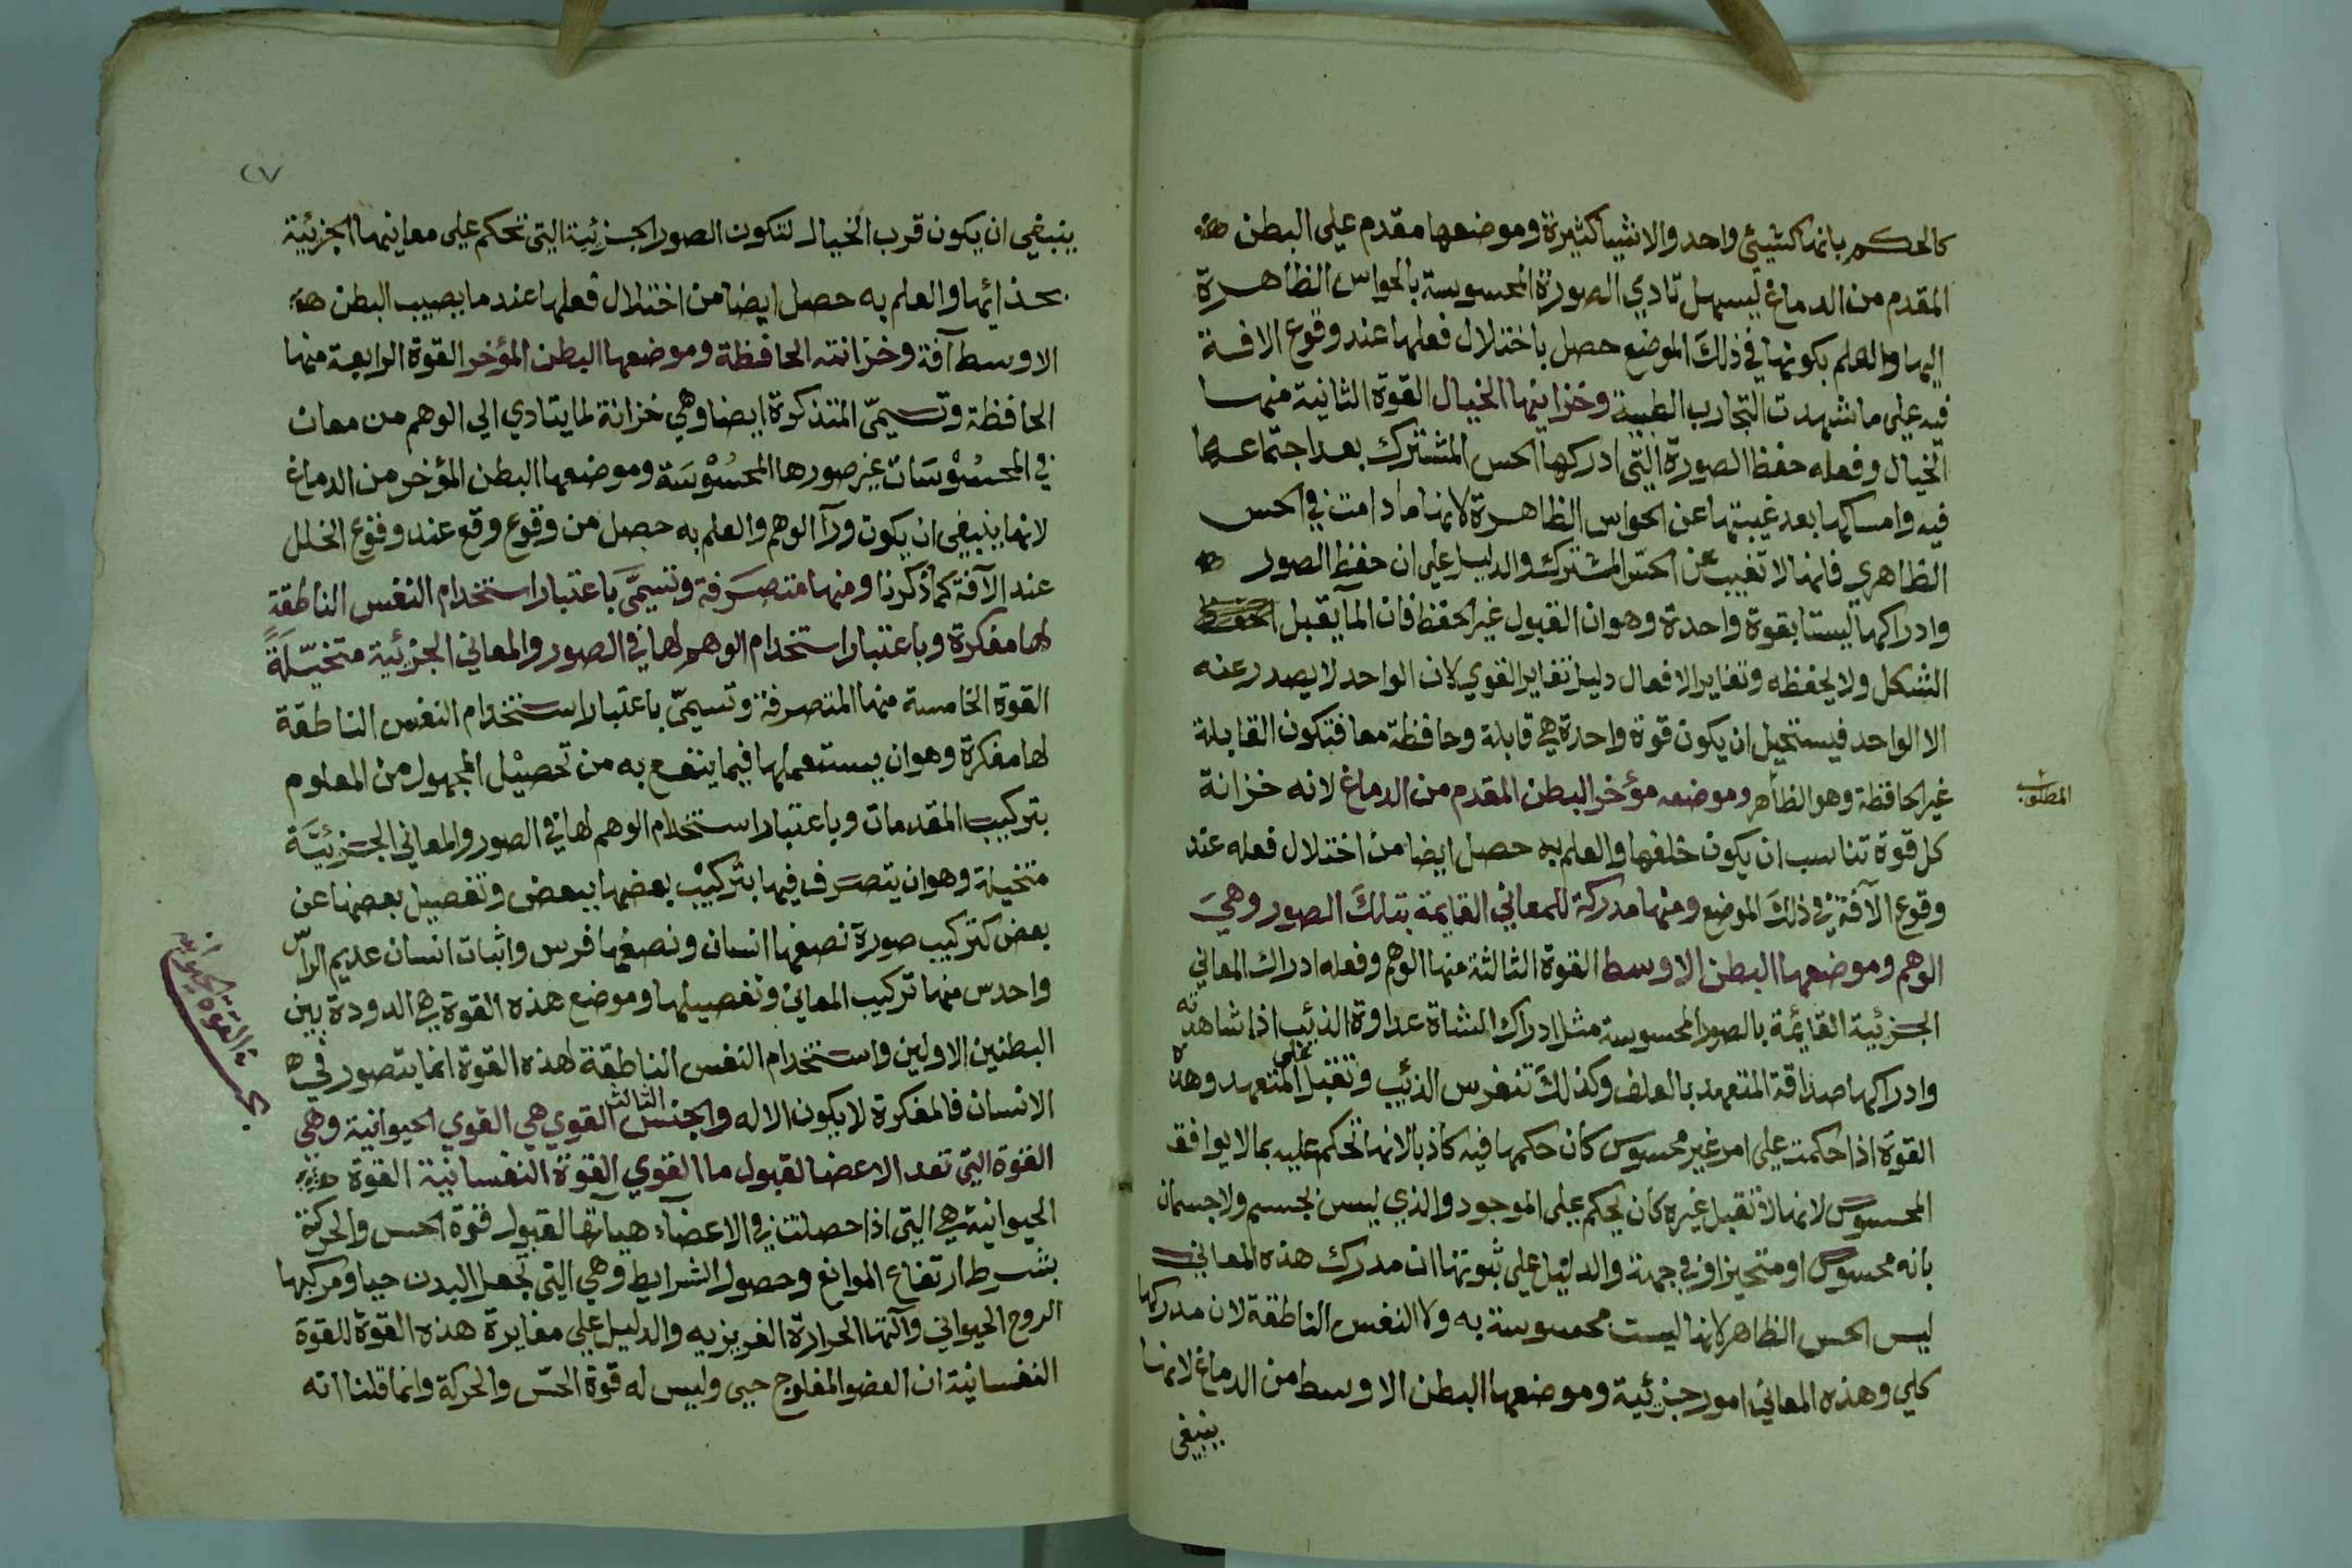 كالحكم بانها كشيئ واحد والاشيا كثيرة وموضعها مقدم علي البطن
المقدم من الدماغ ليسهل تادي الصورة المحسوسة بالحواس الظاهرة
اليها والعلم بكونها في ذلك الموضع حصل باختلال فعلها عند وقوع الافة
فيه علي ما شهدت التجارب الطبية وخزانتها الخيال القوة الثانية منها
الخيال وفعله حفظ الصورة التي ادركها الحس المشترك بعد اجتماعها
فيه وامساكها بعد غيبتها عن الحواس الظاهرة لانها ما دامت في الحس
الظاهري فانها لا تغيب عن الحس المشترك والدليل علي ان حفظ الصور
وادراكها ليستا بقوة واحدة وهو ان القبول غير الحفظ فان الما يقبل
الشكل ولا يحفظه وتغاير الافعال دليل تغاير القوي لان الواحد لا يصدر عنه
الا الواحد فيستحيل ان يكون قوة واحدة هي قابلة وحافظة معا فتكون القابلة
غير الحافظة وهو الظاهر وموضعه مؤخر البطن المقدم من الدماغ لانه خزانة
المطلوب
كل قوة تناسب ان يكون خلفها والعلم به حصل ايضا من اختلال فعله عند
وقوع الآفة في ذلك الموضع ومنها مدركة للمعاني القايمة بتلك الصور وهي
الوهم وموضعها البطن الاوسط القوة الثالثة منها الوهم وفعله ادراك المعاني
الجزئية القائمة بالصور المحسوسة مثل ادراك الشاة عداوة الذئب اذا شاهدته
وادراكها صداقة المتعهد بالعلف وكذلك تنفر من الذئب وتقبل علي المتعهد وهذه
القوة اذا حكمت علي امر غير محسوس كان حكمها فيه كاذبا لانها تحكم عليه بما لا يوافق
المحسوس لانها لا تقبل غيره كان يحكم علي الموجود والذي ليس بجسم ولا جسمان
بانه محسوس او متحيز او في جهة والدليل علي ثبوتها ان مدرك هذه المعاني
ليس الحس الظاهر لانها ليست محسوسة به ولا النفس الناطقة لان مدركها
كلي وهذه المعاني امور جزئية وموضعها البطن الاوسط من الدماغ لانها
ينبغي
٢٧
ينبغي ان يكون قرب الخيال لتكون الصور الجزئية التي تحكم علي معانيها الجزئية
بحذائها والعلم به حصل ايضا من اختلال فعلها عند ما يصيب البطن
الاوسط آفة وخزانته الحافظة وموضعها البطن المؤخر القوة الرابعة منها
الحافظة وتسمي المتذكرة ايضا وهي خزانة لما يتادي الي الوهم من معان
في المحسوسات غير صورها المحسوسة وموضعها البطن المؤخر من الدماغ
لانها ينبغي ان يكون ورآ الوهم والعلم به حصل من وقوع وقع عند وقوع الخلل
عند الآفة كما ذكرنا ومنها متصرفة وتسمي باعتبار استخدام النفس الناطقة
لها مفكرة وباعتبار استخدام الوهم لها في الصور والمعاني الجزئية متخيلة
القوة الخامسة منها المتصرفة وتسمي باعتبار استخدام النفس الناطقة
لها مفكرة وهو ان يستعملها فيما ينتفع به من تحصيل المجهول من المعلوم
بتركيب المقدمات وباعتبار استخدام الوهم لها في الصور والمعاني الجزئية
متخيلة وهو ان يتصرف فيها بتركيب بعضها ببعض وتفصيل بعضها عن
بعض كتركيب صورة نصفها انسان ونصفها فرس واثبات انسان عديم الراس
منها تركيب المعاني وتفصيلها وموضع هذه القوة هي الدودة بين
البطنين الاولين واستخدام النفس الناطقة لهذه القوة انما يتصور في
الانسان فالمفكرة لا يكون الا له والجنس الثالث القوي هي القوي الحيوانية وهي
القوة الحيوانية
القوة التي تعد الاعضا لقبول ما القوي القوة النفسانية القوة
الحيوانية هي التي اذا حصلت في الاعضاء هياتها لقبول قوة الحس والحركة
بشرط ارتفاع الموانع وحصول الشرايط وهي التي تجعل البدن حيا ومركبها
الروح الحيواني وآلتها الحرارة الغريزيه والدليل علي مغايرة هذه القوة للقوة
النفسانية ان العضو المفلوج حيي وليس له قوة الحس والحركة وانما قلنا انه